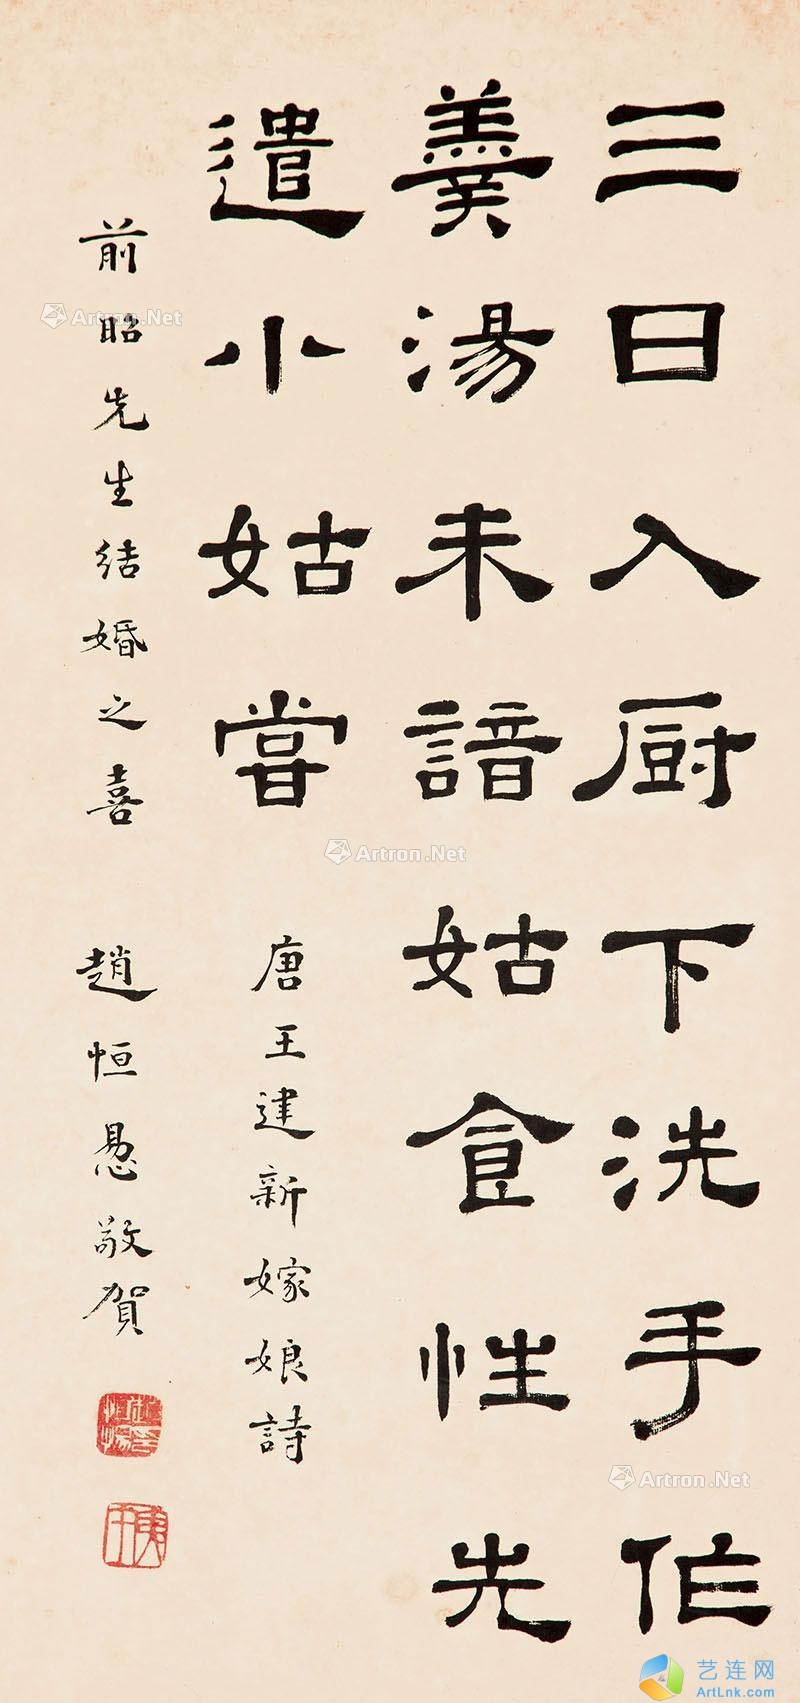 三日入厨下洗手作
羹湯未諳姑食性先
遣小姑嘗
唐王建新嫁娘詩
前昭先生結婚之喜
趙恒惖敬賀
Artron.Net
Artron.Net
Artron.Net
艺连网
ArtLnk.com